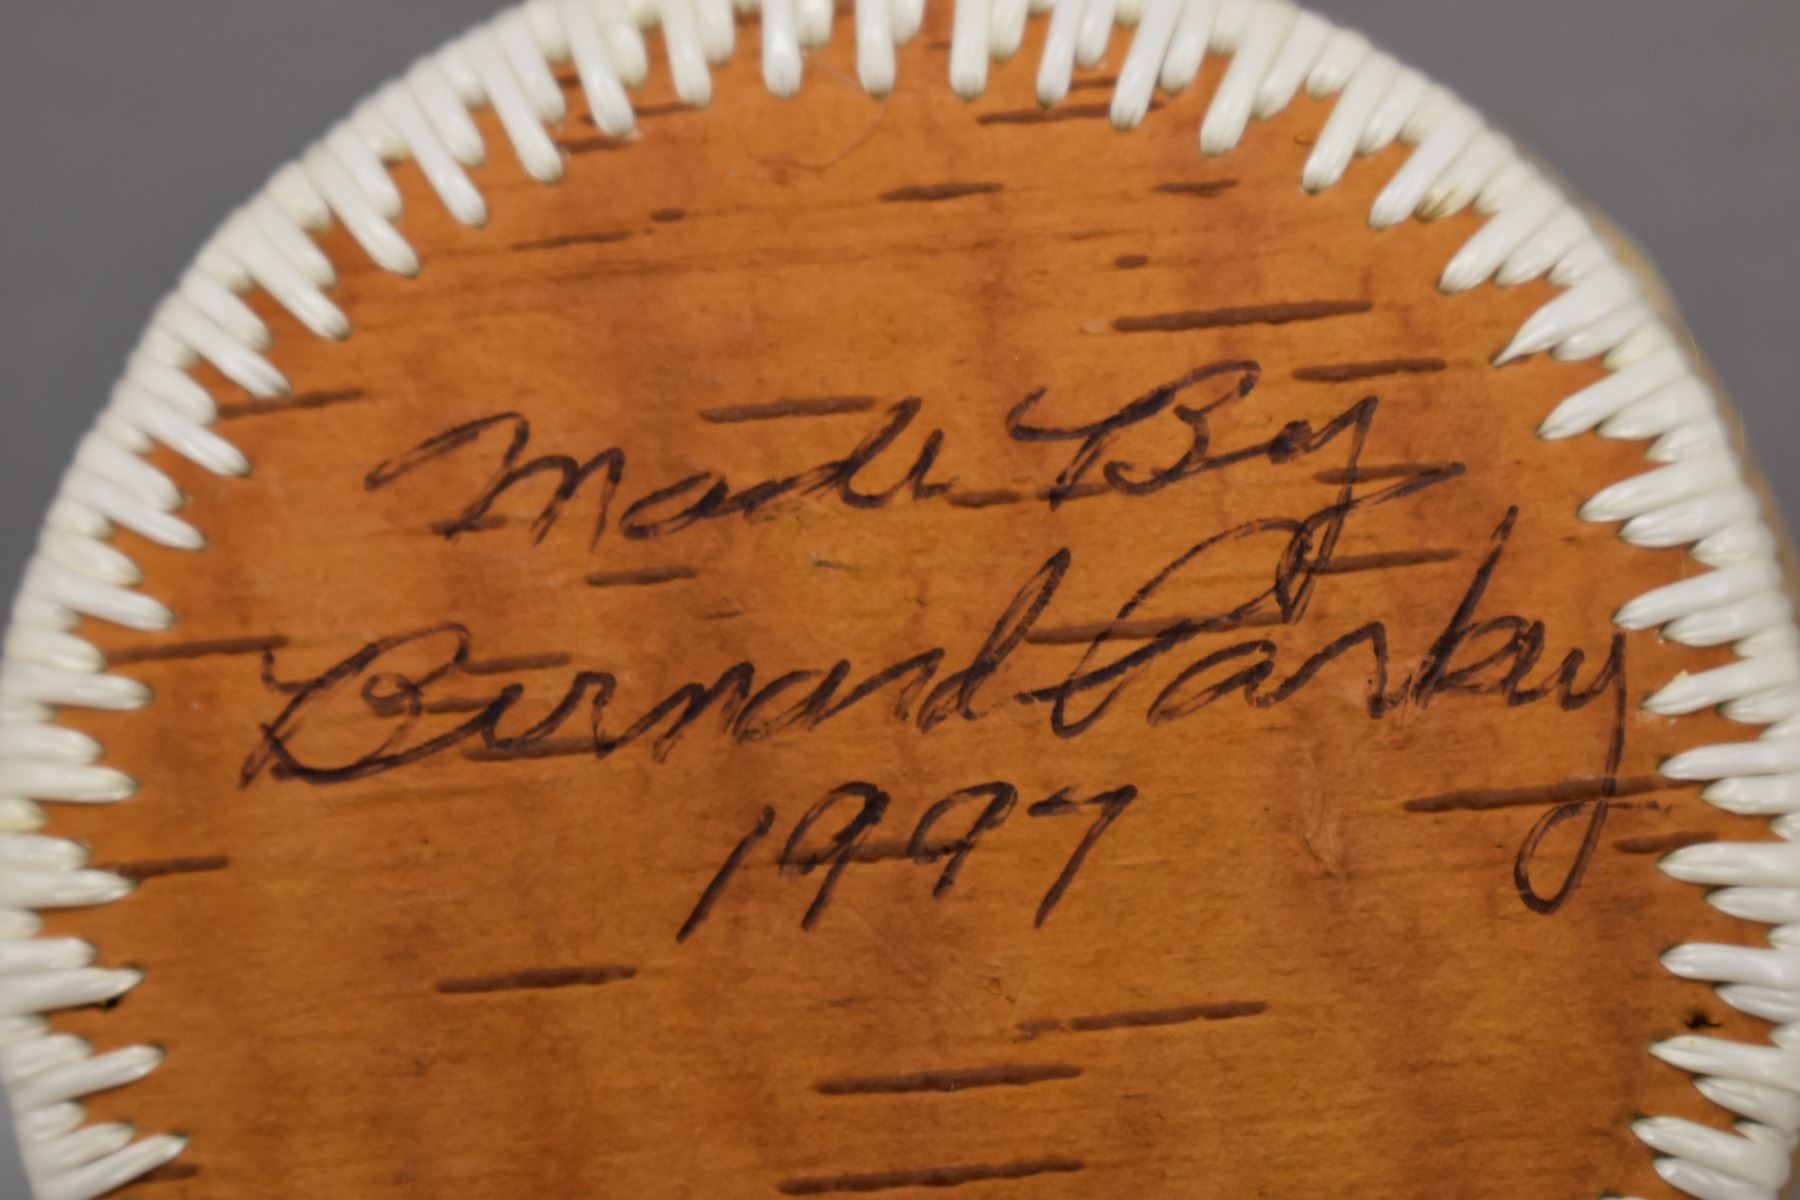 Made By
Bernard Parkey
1997